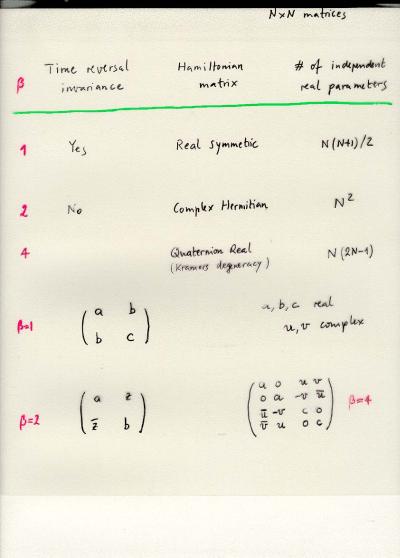 N×N matrices
β Time reversal invariance Hamiltonian matrix # of independent real parameters
1 Yes Real Symmetric N(N+1)/2
2 No Complex Hermitian N²
4 Quaternion Real N(2N-1)
(Kramers degeneracy)
β=1 ( a b a, b, c real
b c ) u, v complex
β=2 ( a z
z̅ b )
( a 0 u v
0 a -v̅ u̅
u̅ -v c 0
v̅ u 0 c ) β=4